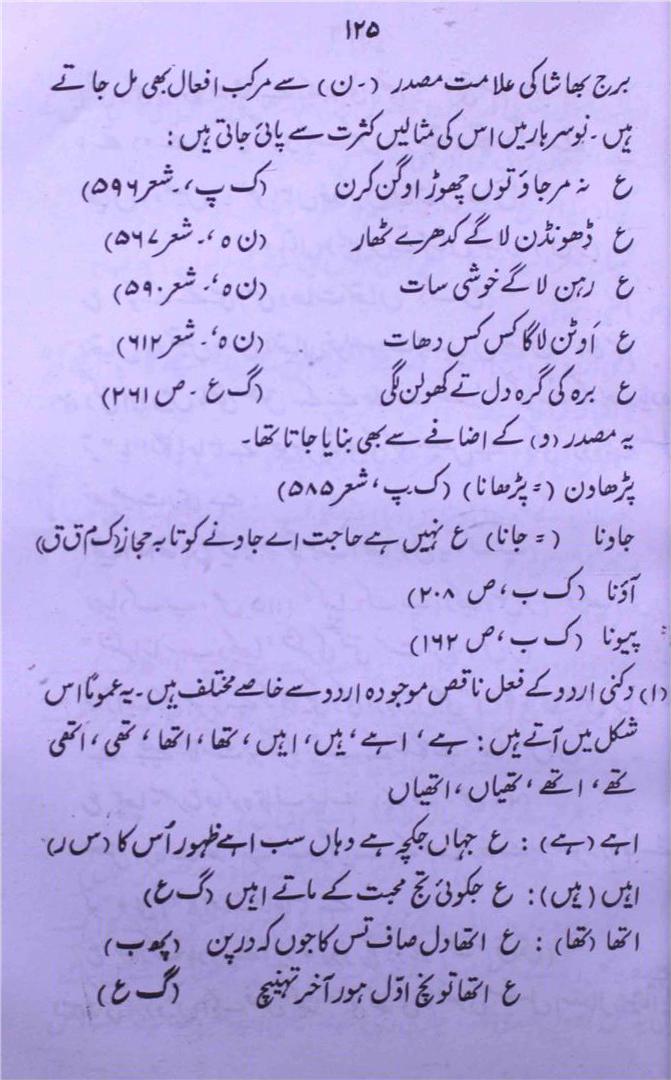 ۱۲۵
برج بھاشا کی علامت مصدر (۔ن) سے مرکب افعال بھی مل جاتے
ہیں۔ نوسرہار میں اس کی مثالیں کثرت سے پائی جاتی ہیں:
ع نہ مرجاؤ توں چھوڑ اوگن کرن (ک پ، ۔شعر ۵۹۶)
ع ڈھونڈن لاگے کدھرے ٹھار (ن ہ، ۔ شعر ۵۶۷)
ع رہن لاگے خوشی سات (ن ہ، ۔ شعر ۵۹۰)
ع اَوٹن لاگا کس کس دھات (ن ہ، ۔ شعر ۶۱۲)
ع برہ کی گرہ دل تے کھولن لگی (گ ع ۔ ص ۲۶۱)
یہ مصدر (و) کے اضافے سے بھی بنایا جاتا تھا۔
پڑھاون (= پڑھانا) (ک پ، شعر ۵۸۵)
جاونا (= جانا) ع نہیں ہے حاجت اے جاونے کو تا بہ حجاز (ک م ق ق)
آؤنا (ک ب، ص ۲۰۸)
پیونا (ک ب، ص ۱۶۲)
(۱) دکنی اردو کے فعل ناقص موجودہ اردو سے خاصے مختلف ہیں۔ یہ عموماً اس
شکل میں آتے ہیں: ہے، اہے، ہیں، اہیں، تھا، اتھا، تھی، اتھی
تھے، اتھے، تھیاں، اتھیاں
اہے (ہے) : ع جہاں جکچہ ہے وہاں سب اہے ظہور اُس کا (س ر)
اہیں (ہیں): ع جکوئی تج محبت کے ماتے اہیں (گ ع)
اتھا (تھا) : ع اتھا دل صاف تس کا جوں کہ درپن (پھ ب)
ع اتھا تونچ اوّل ہور آخر تہنیچ (گ ع)